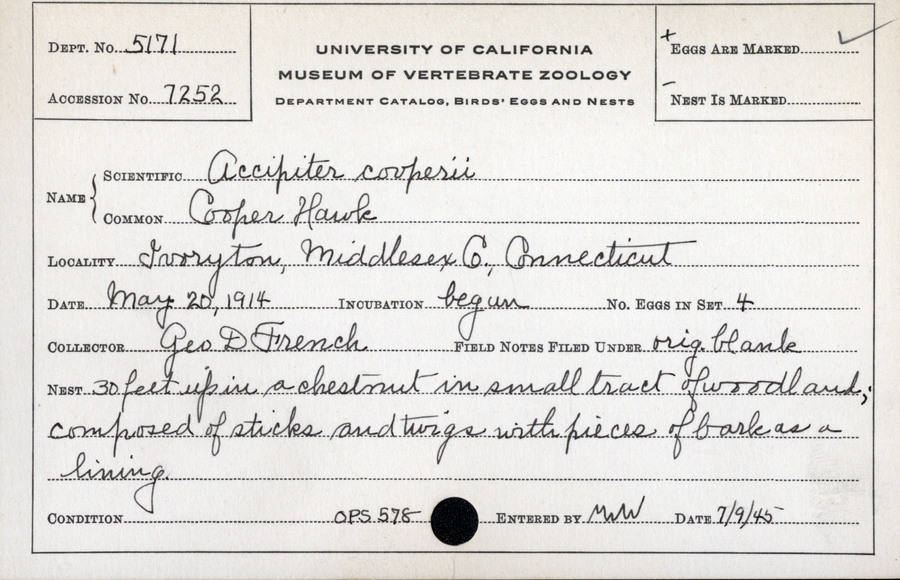 Dept. No. 5171
Accession No. 7252
UNIVERSITY OF CALIFORNIA
MUSEUM OF VERTEBRATE ZOOLOGY
Department Catalog, Birds' Eggs and Nests
+ Eggs Are Marked ✓
- Nest Is Marked
Name { Scientific Accipiter cooperii
Common Cooper Hawk
Locality Ivoryton, Middlesex Co., Connecticut
Date May 20, 1914 Incubation begun No. Eggs in Set 4
Collector Geo D French Field Notes Filed Under orig. blank
Nest 30 feet up in a chestnut in small tract of woodland;
composed of sticks and twigs with pieces of bark as a
lining.
Condition OPS 578 Entered by MWW Date 7/9/45